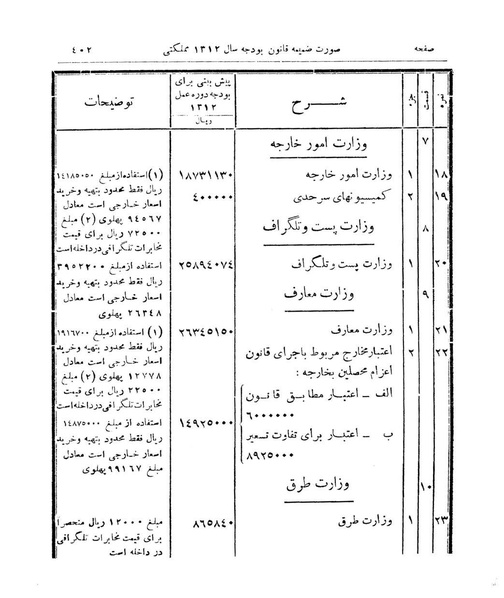 صفحه
صورت ضمیمه قانون بودجه سال ۱۳۱۲ مملکتی
۴۰۲
نمره
قسمت
جزء
شــرح
پیش بینی برای
بودجه دوره عمل
۱۳۱۲
ریـال
توضیحات
۷
وزارت امور خارجه
۱۸
۱
وزارت امور خارجه
۱۸۷۳۱۱۳۰
(۱) استفاده از مبلغ ۱۴۱۸۵۰۵۰
ریال فقط محدود بتهیه وخرید
اسعار خارجی است معادل
۹۴۵۶۷ پهلوی (۲) مبلغ
۷۲۵۰۰ ریال برای قیمت
مخابرات تلگرافی درداخله است
۱۹
۲
کمیسیونهای سرحدی
۴۰۰۰۰۰
۸
وزارت پست و تلگراف
۲۰
۱
وزارت پست و تلگراف
۲۵۸۹۴۰۷۴
استفاده از مبلغ ۳۹۵۲۲۰۰
ریال فقط محدود بتهیه وخرید
اسعار خارجی است معادل
۲۶۳۴۸ پهلوی
۹
وزارت معارف
۲۱
۱
وزارت معارف
۲۶۳۴۵۱۵۰
(۱) استفاده از مبلغ ۱۹۱۶۷۰۰
ریال فقط محدود بتهیه وخرید
اسعار خارجی است معادل
۱۲۷۷۸ پهلوی (۲) مبلغ
۲۲۵۰۰ ریال برای قیمت
مخابرات تلگرافی درداخله است
۲۲
۲
اعتبار مخارج مربوط باجرای قانون
اعزام محصلین بخارجه :
الف ـ اعتبار مطابق قانون
۶۰۰۰۰۰۰
ب ـ اعتبار برای تفاوت تسعیر
۸۹۲۵۰۰۰
۱۴۹۲۵۰۰۰
استفاده از مبلغ ۱۴۸۷۵۰۰۰
ریال فقط محدود بتهیه وخرید
اسعار خارجی است معادل
مبلغ ۹۹۱۶۷ پهلوی
۱۰
وزارت طرق
۲۳
۱
وزارت طرق
۸۶۵۸۴۰
مبلغ ۱۲۰۰۰ ریال منحصراً
برای قیمت مخابرات تلگرافی
در داخله است